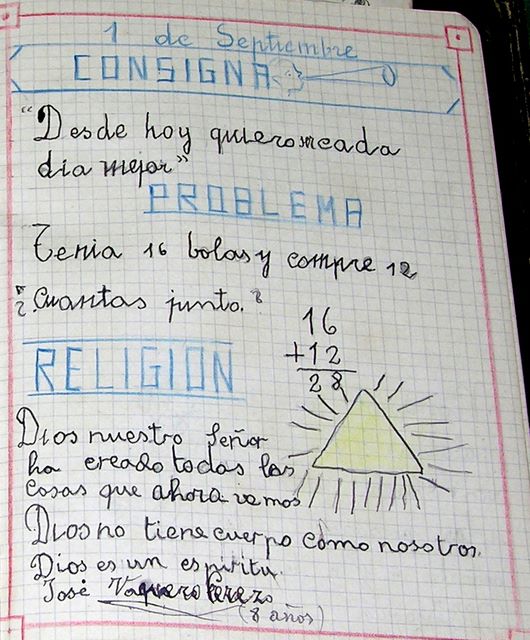 1 de Septiembre
CONSIGNA
"Desde hoy quiero ser cada
dia mejor"
PROBLEMA
Tenia 16 bolas y compre 12
¿Cuantas junto?
16
+12
28
RELIGION
Dios nuestro Señor
ha creado todas las
cosas que ahora vemos
Dios no tiene cuerpo como nosotros.
Dios es un espiritu.
José Vaquero Cerezo
(8 años)